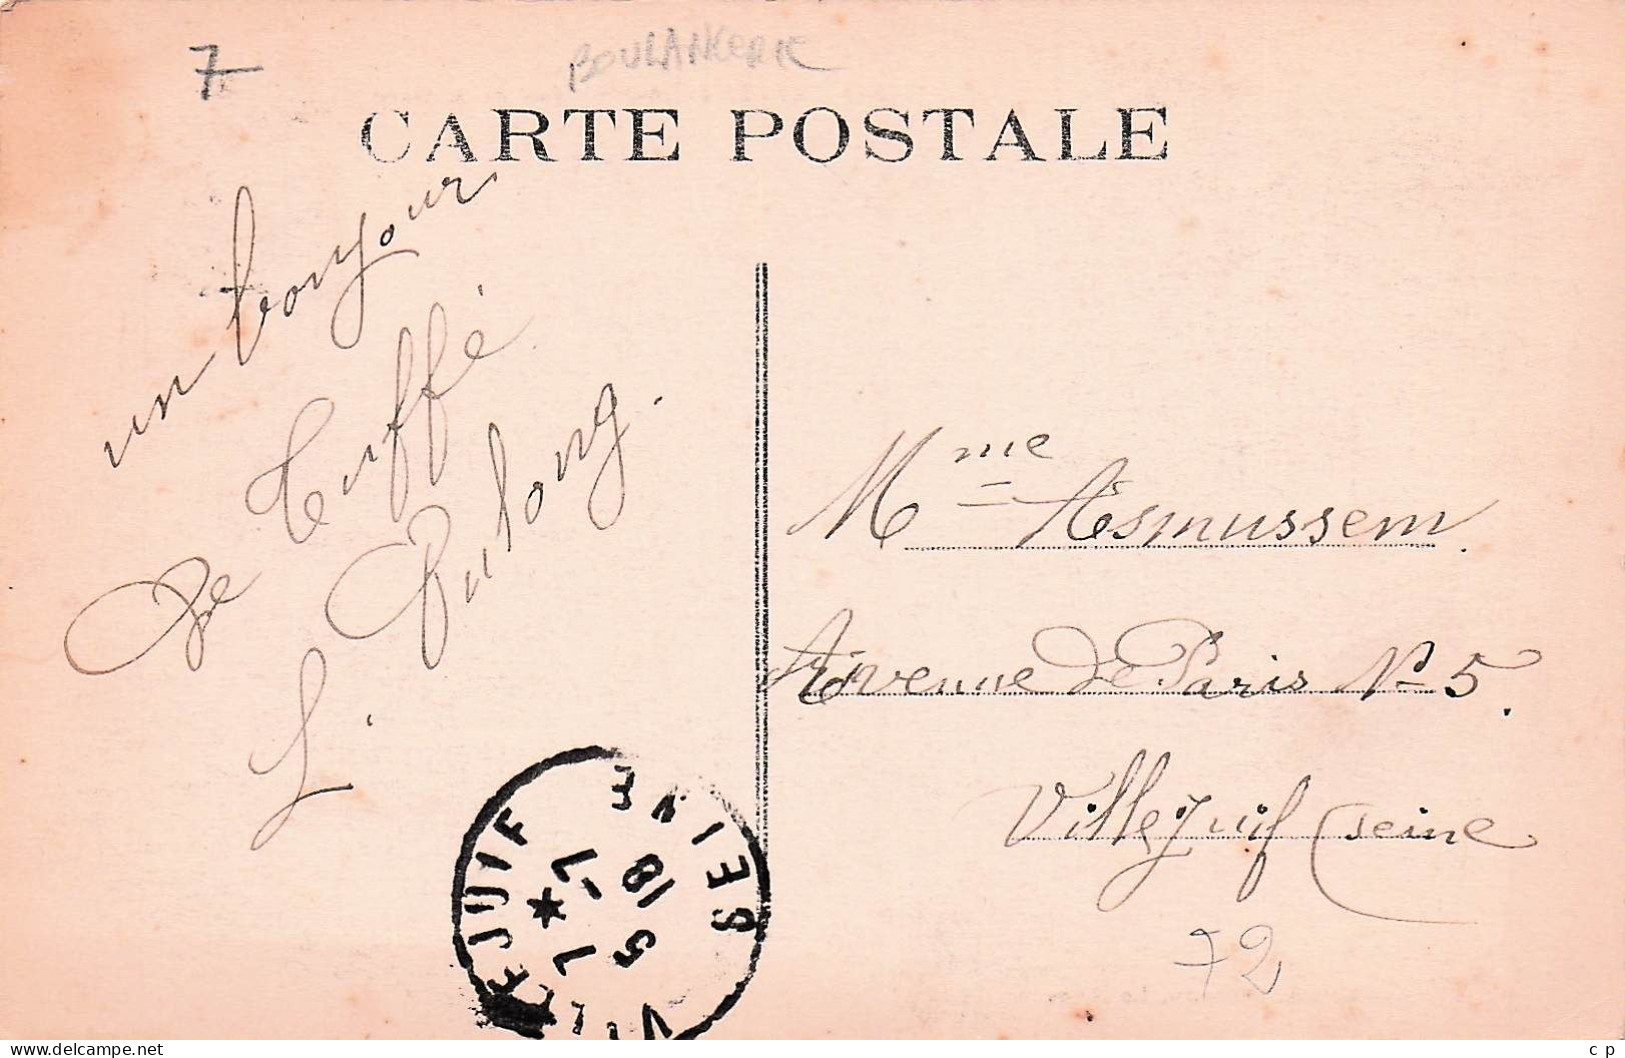 7
BOULANGERIE
CARTE POSTALE
un bonjour
De Tuffé
L. Dulong.
Mme Asmussem.
Avenue de Paris No 5.
Villejuif (Seine
72
VILLEJUIF SEINE
delcampe.net
c p